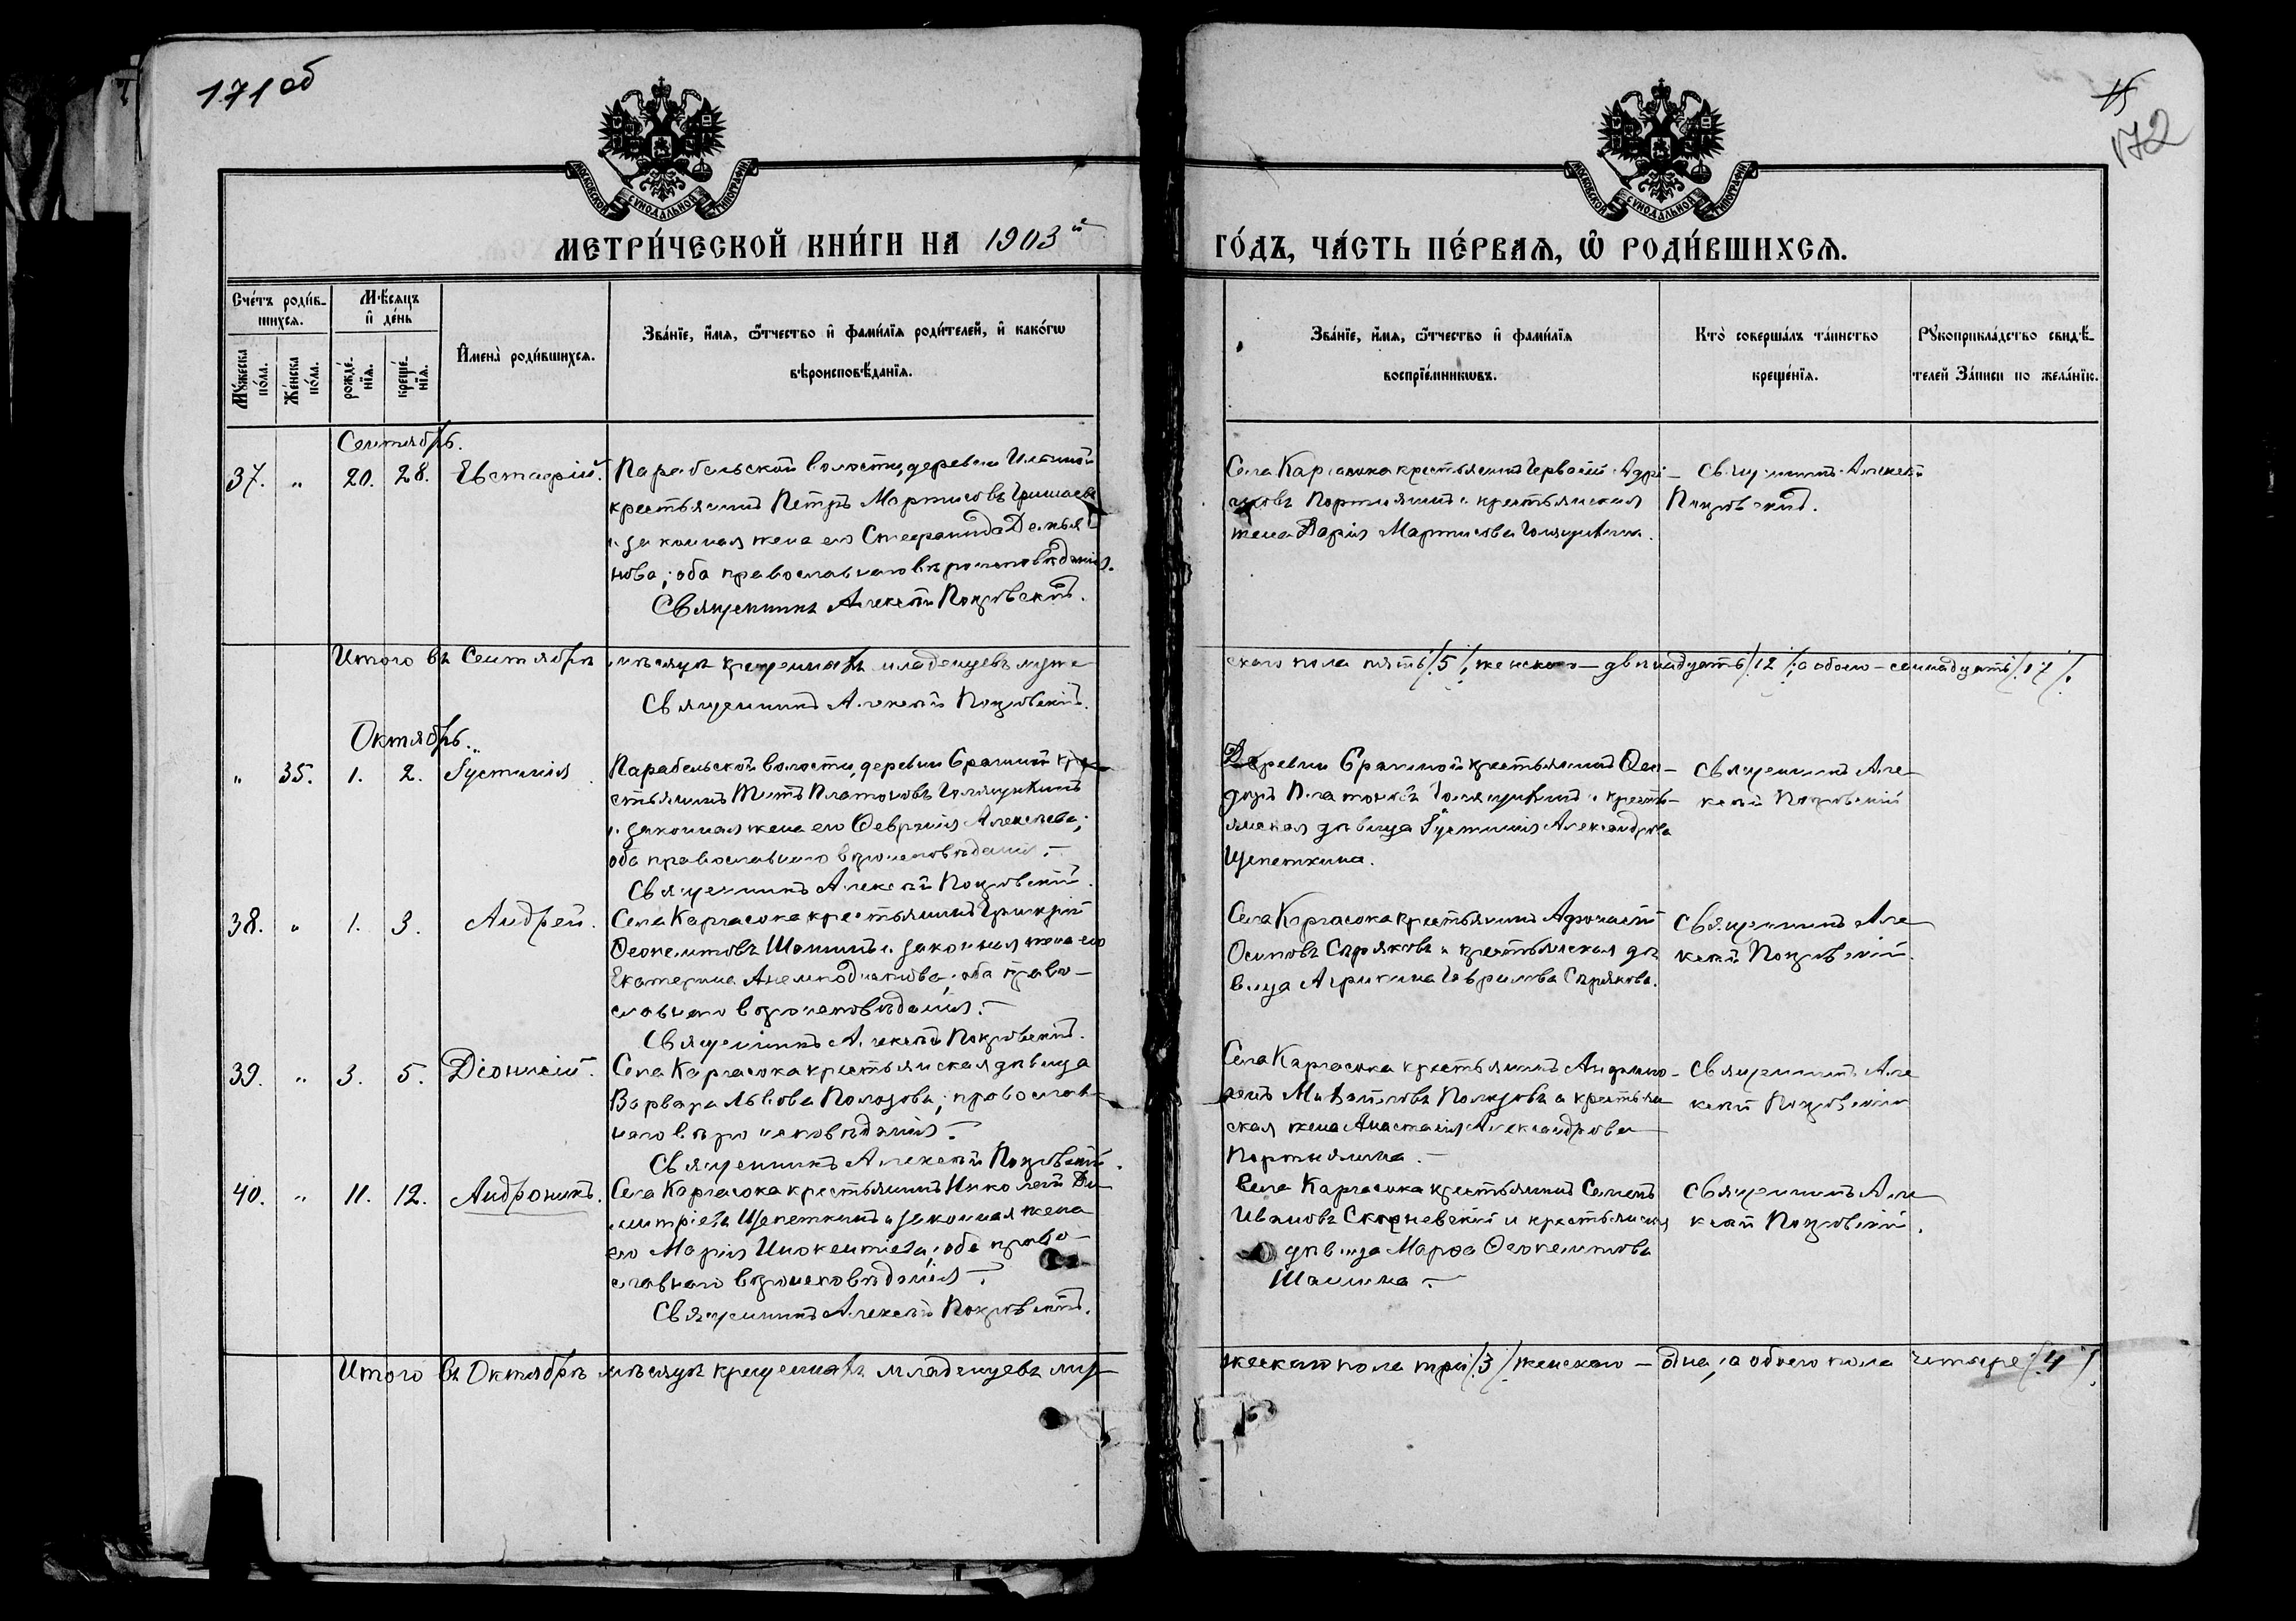 171 об
15
172
МОСКОВСКОЙ СѴНОДАЛЬНОЙ ТИПОГРАФІИ
МОСКОВСКОЙ СѴНОДАЛЬНОЙ ТИПОГРАФІИ
МЕТРИ́ЧЕСКОЙ КНИ́ГИ НА 1903й
ГО́ДЪ, ЧА́СТЬ ПЕ́РВАѦ, Ѽ РОДИ́ВШИХСѦ.
Сче́тъ роди́в-
шихсѧ.
Мꙋ́жеска по́ла.
Же́нска по́ла.
Мѣ́сѧцъ и҆ де́нь
рожде́-
нїѧ.
креще́-
нїѧ.
И҆мена̀ роди́вшихсѧ.
Зва́нїе, и҆́мѧ, ѻ҆́тчество и҆ фами́лїѧ роди́телей, и҆ како́гѡ
вѣроисповѣ́данїѧ.
Зва́нїе, и҆́мѧ, ѻ҆́тчество и҆ фами́лїѧ
воспрїе́мникѡвъ.
Кто̀ соверша́лъ та́инство
креще́нїѧ.
Рꙋкоприкла́дство свидѣ́-
телей за́писи по жела́нїю.
Сентябрь.
37. " 20. 28. Евстафій. Парабельской волости, деревни
крестьянинъ Петръ Мартиновъ Гришаевъ
и законная жена его Стефанида Демья
нова; оба православнаго вѣроисповѣданія.
Священникъ Алексѣй Покровскій.
Села Каргасока крестьянинъ Гервасій Адрі-
ановъ Портнягинъ и крестьянская
жена Дарія Мартинова Голящихина.
Священникъ Алексѣй
Покровскій.
Итого въ Сентябрѣ мѣсяцѣ крещенныхъ младенцевъ муже
скаго пола пять /5/, женскаго – двѣнадцать /12/, а обоего – семнадцать /17/.
Священникъ Алексѣй Покровскій.
Октябрь.
" 35. 1. 2. Іустинія. Парабельской волости, деревни кре-
стьянинъ Титъ Платоновъ Голящихинъ
и законная жена его Февронія Алексѣева;
оба православнаго вѣроисповѣданія.
Священникъ Алексѣй Покровскій.
Деревни крестьянинъ Ѳео-
доръ Платоновъ Голящихинъ и кресть-
янская дѣвица Іустинія Александрова
Щепеткина.
Священникъ Але-
ксѣй Покровскій
38. " 1. 3. Андрей. Села Каргасока крестьянинъ Григорій
Ѳеоктистовъ Шанинъ и законная жена его
Екатерина Анемподистова, оба право-
славнаго вѣроисповѣданія.
Священникъ Алексѣй Покровскій.
Села Каргасока крестьянинъ Афонасій
Осиповъ Сѣряковъ и крестьянская дѣ
вица Агрипина Гаврилова Сѣрякова.
Священникъ Але
ксѣй Покровскій.
39. " 3. 5. Діонисій. Села Каргасока крестьянская дѣвица
Варвара Львова Полозова; православ-
наго вѣроисповѣданія.
Священникъ Алексѣй Покровскій.
Села Каргасока крестьянинъ
Полозовъ и крестьян
ская жена Анастасія Александрова
Портнягина.
Священникъ Але
ксѣй Покровскій
40. " 11. 12. Андроникъ. Села Каргасока крестьянинъ Николай Ди-
митріевъ Щепеткинъ и законная жена
его Марія Инокентіева; оба право-
славнаго вѣроисповѣданія.
Священникъ Алексѣй Покровскій.
Села Каргасока крестьянинъ Семенъ
Ивановъ и крестьянская
дѣвица Марфа Ѳеоктистова
Шанина
Священникъ Але
ксѣй Покровскій.
Итого въ Октябрѣ мѣсяцѣ крещенныхъ младенцевъ му-
жескаго пола три /3/, женскаго – одна, а обоего пола четыре /4/.